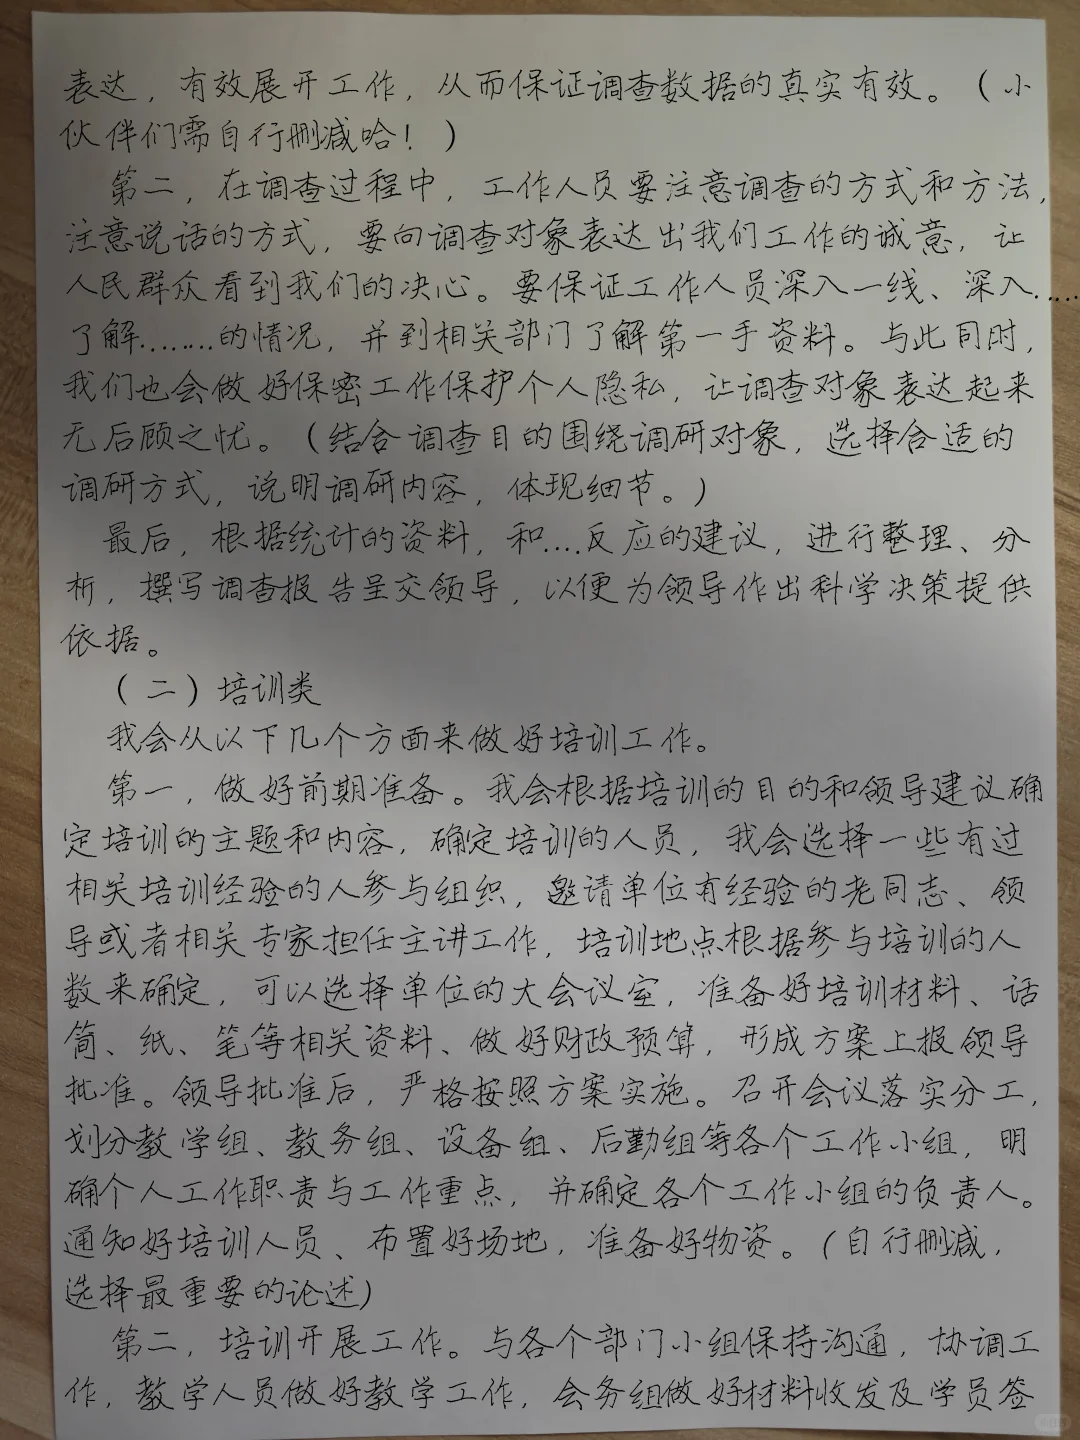 表达，有效展开工作，从而保证调查数据的真实有效。（小
伙伴们需自行删减哈！）
第二，在调查过程中，工作人员要注意调查的方式和方法，
注意说话的方式，要向调查对象表达出我们工作的诚意，让
人民群众看到我们的决心。要保证工作人员深入一线、深入.....
了解........的情况，并到相关部门了解第一手资料。与此同时，
我们也会做好保密工作保护个人隐私，让调查对象表达起来
无后顾之忧。（结合调查目的围绕调研对象，选择合适的
调研方式，说明调研内容，体现细节。）
最后，根据统计的资料，和....反应的建议，进行整理、分
析，撰写调查报告呈交领导，以便为领导作出科学决策提供
依据。
（二）培训类
我会从以下几个方面来做好培训工作。
第一，做好前期准备。我会根据培训的目的和领导建议确
定培训的主题和内容，确定培训的人员，我会选择一些有过
相关培训经验的人参与组织，邀请单位有经验的老同志、领
导或者相关专家担任主讲工作，培训地点根据参与培训的人
数来确定，可以选择单位的大会议室，准备好培训材料、话
筒、纸、笔等相关资料、做好财政预算，形成方案上报领导
批准。领导批准后，严格按照方案实施。召开会议落实分工，
划分教学组、教务组、设备组、后勤组等各个工作小组，明
确个人工作职责与工作重点，并确定各个工作小组的负责人。
通知好培训人员、布置好场地，准备好物资。（自行删减，
选择最重要的论述）
第二，培训开展工作。与各个部门小组保持沟通，协调工
作，教学人员做好教学工作，会务组做好材料收发及学员签